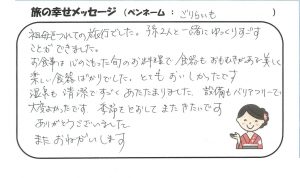 旅の幸せメッセージ（ペンネーム：ごりらいも）
祖母をつれての旅行でした。3才2人と一緒にゆっくりすごす
ことができました。
お食事は心のこもった旬のお料理で、食器もおもむきがある美しく
楽しい食器ばかりでした。とてもおいしかったです
温泉も清潔ですごくあたたまりました。設備もバリアフリーで
大変よかったです 季節をとおしてまたきたいです
ありがとうございました
またおねがいします